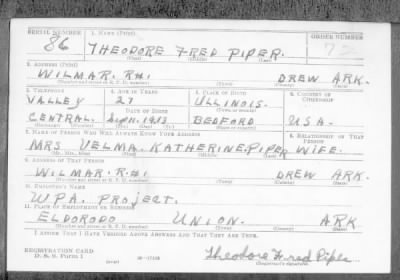 SERIAL NUMBER 1. NAME (Print) ORDER NUMBER
86 THEODORE FRED PIPER.
(First) (Middle) (Last)
2. ADDRESS (Print)
WILMAR. R#1 DREW ARK.
(Number and street or R. F. D. number) (Town) (County) (State)
3. TELEPHONE 4. AGE IN YEARS 5. PLACE OF BIRTH 6. COUNTRY OF CITIZENSHIP
VALLEY 27 ULLINOIS.
DATE OF BIRTH
CENTRAL. Sept 11. 1913 BEDFORD U.S.A.
7. NAME OF PERSON WHO WILL ALWAYS KNOW YOUR ADDRESS 8. RELATIONSHIP OF THAT PERSON
MRS VELMA. KATHERINE. PIPER WIFE.
(Mr., Mrs., Miss) (First) (Middle) (Last)
9. ADDRESS OF THAT PERSON
WILMAR. R#1 DREW ARK.
(Number and street or R. F. D. number) (Town) (County) (State)
10. EMPLOYER'S NAME
WPA. PROJECT.
11. PLACE OF EMPLOYMENT OR BUSINESS
ELDORODO UNION. ARK
(Number and street or R. F. D. number) (Town) (County) (State)
I AFFIRM THAT I HAVE VERIFIED ABOVE ANSWERS AND THAT THEY ARE TRUE.
REGISTRATION CARD
D. S. S. Form 1 Theodore Fred Piper
(Registrant's signature)